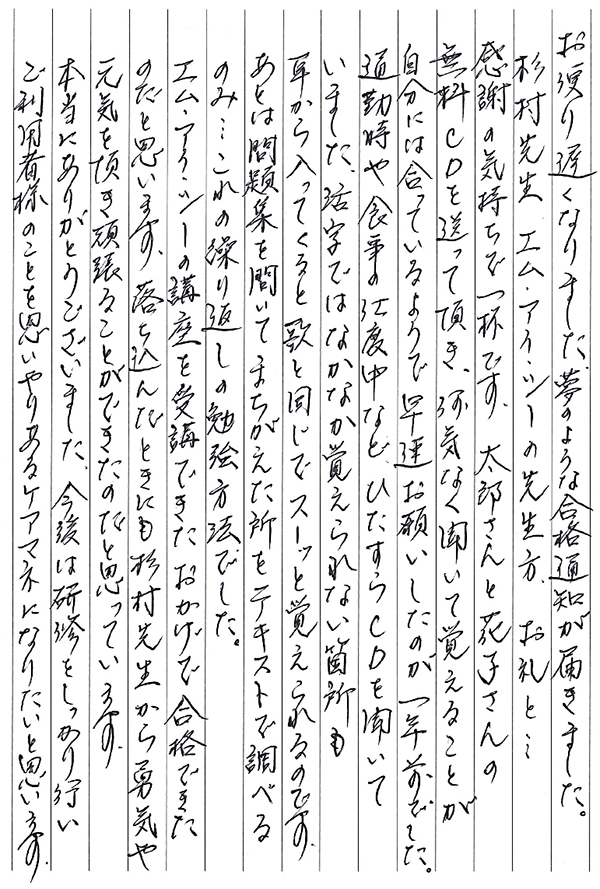 お便り遅くなりました。夢のような合格通知が届きました。
杉村先生 エム・アイ・シーの先生方、お礼と…
感謝の気持ちで一杯です。太郎さんと花子さんの
無料CDを送って頂き、何気なく聞いて覚えることが
自分には合っているようで早速お願いしたのが一年前でした。
通勤時や食事の仕度中など、ひたすらCDを聞いて
いました。活字ではなかなか覚えられない箇所も
耳から入ってくると歌と同じでスーッと覚えられるのです。
あとは問題集を開いてまちがえた所をテキストで調べる
のみ…これの繰り返しの勉強方法でした。
エム・アイ・シーの講座を受講できたおかげで合格できた
のだと思います。落ち込んだときにも杉村先生から勇気や
元気を頂き頑張ることができたのだと思っています。
本当にありがとうございました。今後は研修をしっかり行い
ご利用者様のことを思いやりあるケアマネになりたいと思います。